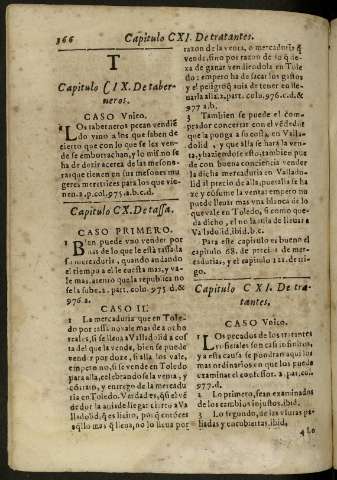 366
Capitulo CXI. De tratantes.
T
Capitulo CIX. De taber-
neros.
CASO Vnico.
Los taberneros pecan vendiē
do vino a los que saben de
cierto que con lo que se les ven-
de se emborrachan, y lo mismo se
ha de dezir acerca de las mesone-
ras que tienen en sus mesones mu
geres meretrices para los que vie-
nen. 2. p. col. 975. a. b. c. d.
Capitulo CX. De tassa.
CASO PRIMERO.
Bien puede vno vender por
mas de lo que le està tassa la
su mercaduria, quando andando
el tiempo a el le cuesta mas, y va-
le mas, atento que la republica no
se la sube. 2. part. colu. 975 d. &
976. a.
CASO II.
1 La mercaduria que en Tole-
do por tassa no vale mas de a ocho
reales, si se lleua a Valladolid a cos
ta del que la vende, bien se puede
vender por doze, si alla los vale,
empero no, si se vende en Toledo
para alla, celebrando se la venta, y
contrato, y entrego de la mercadu
ria en Toledo. Verdad es, q̃ si el vē
dedor la auia de llegar cierto a Va
lladolid, q̃ es licito, porq̃ entōces
aq̃llo mas q̃ lleua, no lo lleua por
razon de la venta, o mercaduria q̃
vende, sino por razon de lo que de
xa de ganar vendiendola en Tole
do: empero ha de sacar los gastos
y el peligro q̃ auia de tener en lle-
narla alla. 2. part. colu. 976. c. d. &
977 a. b.
3 Tambien se puede el com-
prador concertar con el vēdedor
que la ponga a su costa, en Valla-
dolid, y que alla se hara la ven-
ta, y haziendo esto, tambien pue
de con buena conciencia vender
la dicha mercaduria en Vallado
lid al precio de alla, pues alla se ha
ze, y consume la venta: empero no
puede lleuar mas vna blanca de lo
que vale en Toledo, si como que-
da dicho, el no la auia de lleuar a
Valladolid. ibid. b. c.
Para este capitulo es bueno el
capitulo 68. de precio de mer-
cadurias, y el capitulo 121. de tri-
go.
Capitulo CXI. De tra-
tantes.
CASO Vnico.
1 Los pecados de los tratantes
y oficiales son casi infinitos,
y a esta causa se pondran aqui los
mas ordinarios en que los puede
examinar el confessor. 2. par. col.
977. d.
2 Lo primero, sean examinados
de los cambios injustos. ibid.
3 Lo segundo, de las vsuras pa-
liadas y encubiertas. ibid.
4 Lo